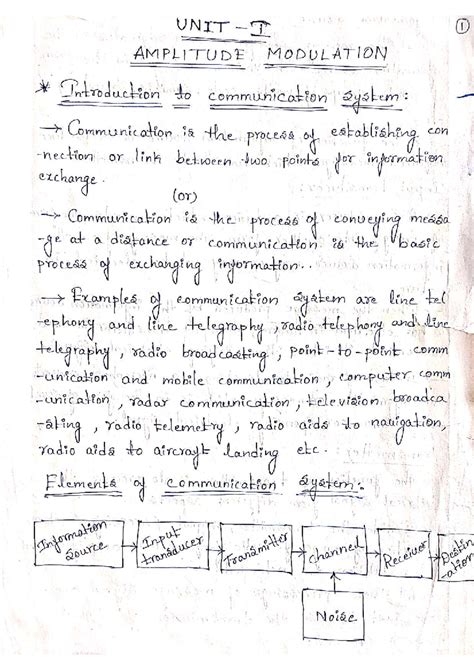 UNIT - I
①
AMPLITUDE MODULATION
* Introduction to communication system :
→ Communication is the process of establishing con
-nection or link between two points for information
exchange.
(or)
→ Communication is the process of conveying messa
-ge at a distance or communication is the basic
process of exchanging information..
→ Examples of communication system are line tel
-ephony and line telegraphy, radio telephony and line
telegraphy, radio broadcasting, point-to-point comm
-unication and mobile communication, computer comm
-unication, radar communication, television broadca
-sting, radio telemetry, radio aids to navigation,
radio aids to aircraft landing etc.
Elements of communication system:-
Information
Source
Input
transducer
Transmitter
channel
Receiver
Destin
-ation
Noise